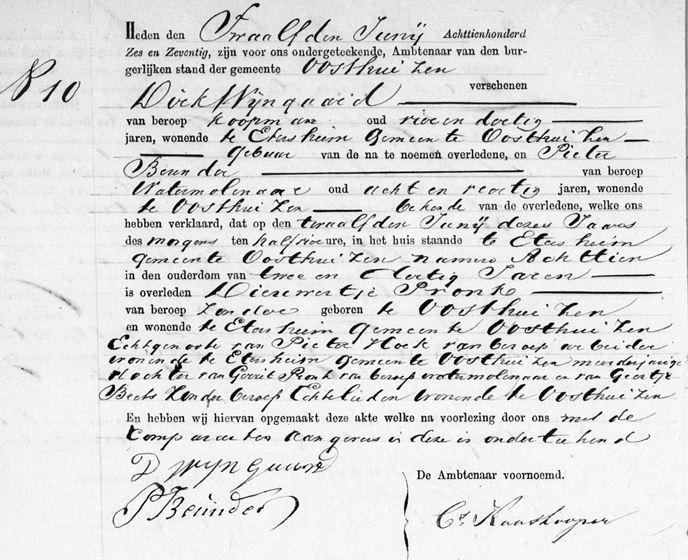 Heden den Twaalfden Junij Achttienhonderd
Zes en Zeventig, zijn voor ons ondergeteekende, Ambtenaar van den bur-
gerlijken stand der gemeente Oosthuizen
No 10
verschenen
Dirk Wijngaard
van beroep koopman oud vier en dertig
jaren, wonende te Etersheim Gemeente Oosthuizen
gebuur van de na te noemen overledene, en Pieter
Beunder van beroep
Watermolenaar oud acht en veertig jaren, wonende
te Oosthuizen bekende van de overledene, welke ons
hebben verklaard, dat op den twaalfden Junij dezes Jaars
des morgens ten half vier ure, in het huis staande te Etersheim
gemeente Oosthuizen numero Achttien
in den ouderdom van twee en dertig Jaren
is overleden Dieuwertje Pronk
van beroep zonder geboren te Oosthuizen
en wonende te Etersheim Gemeente Oosthuizen
Echtgenoote van Pieter Hoek van beroep arbeider
wonende te Etersheim gemeente Oosthuizen meerderjarige
dochter van Gerrit Pronk van beroep watermolenaar en van Geertje
Beets zonder beroep Echtelieden wonende te Oosthuizen
En hebben wij hiervan opgemaakt deze akte welke na voorlezing door ons met de
Comparanten aangevers is deze is onderteekend
D Wijngaard
De Ambtenaar voornoemd.
P Beunder
Cs. Kaaskooper